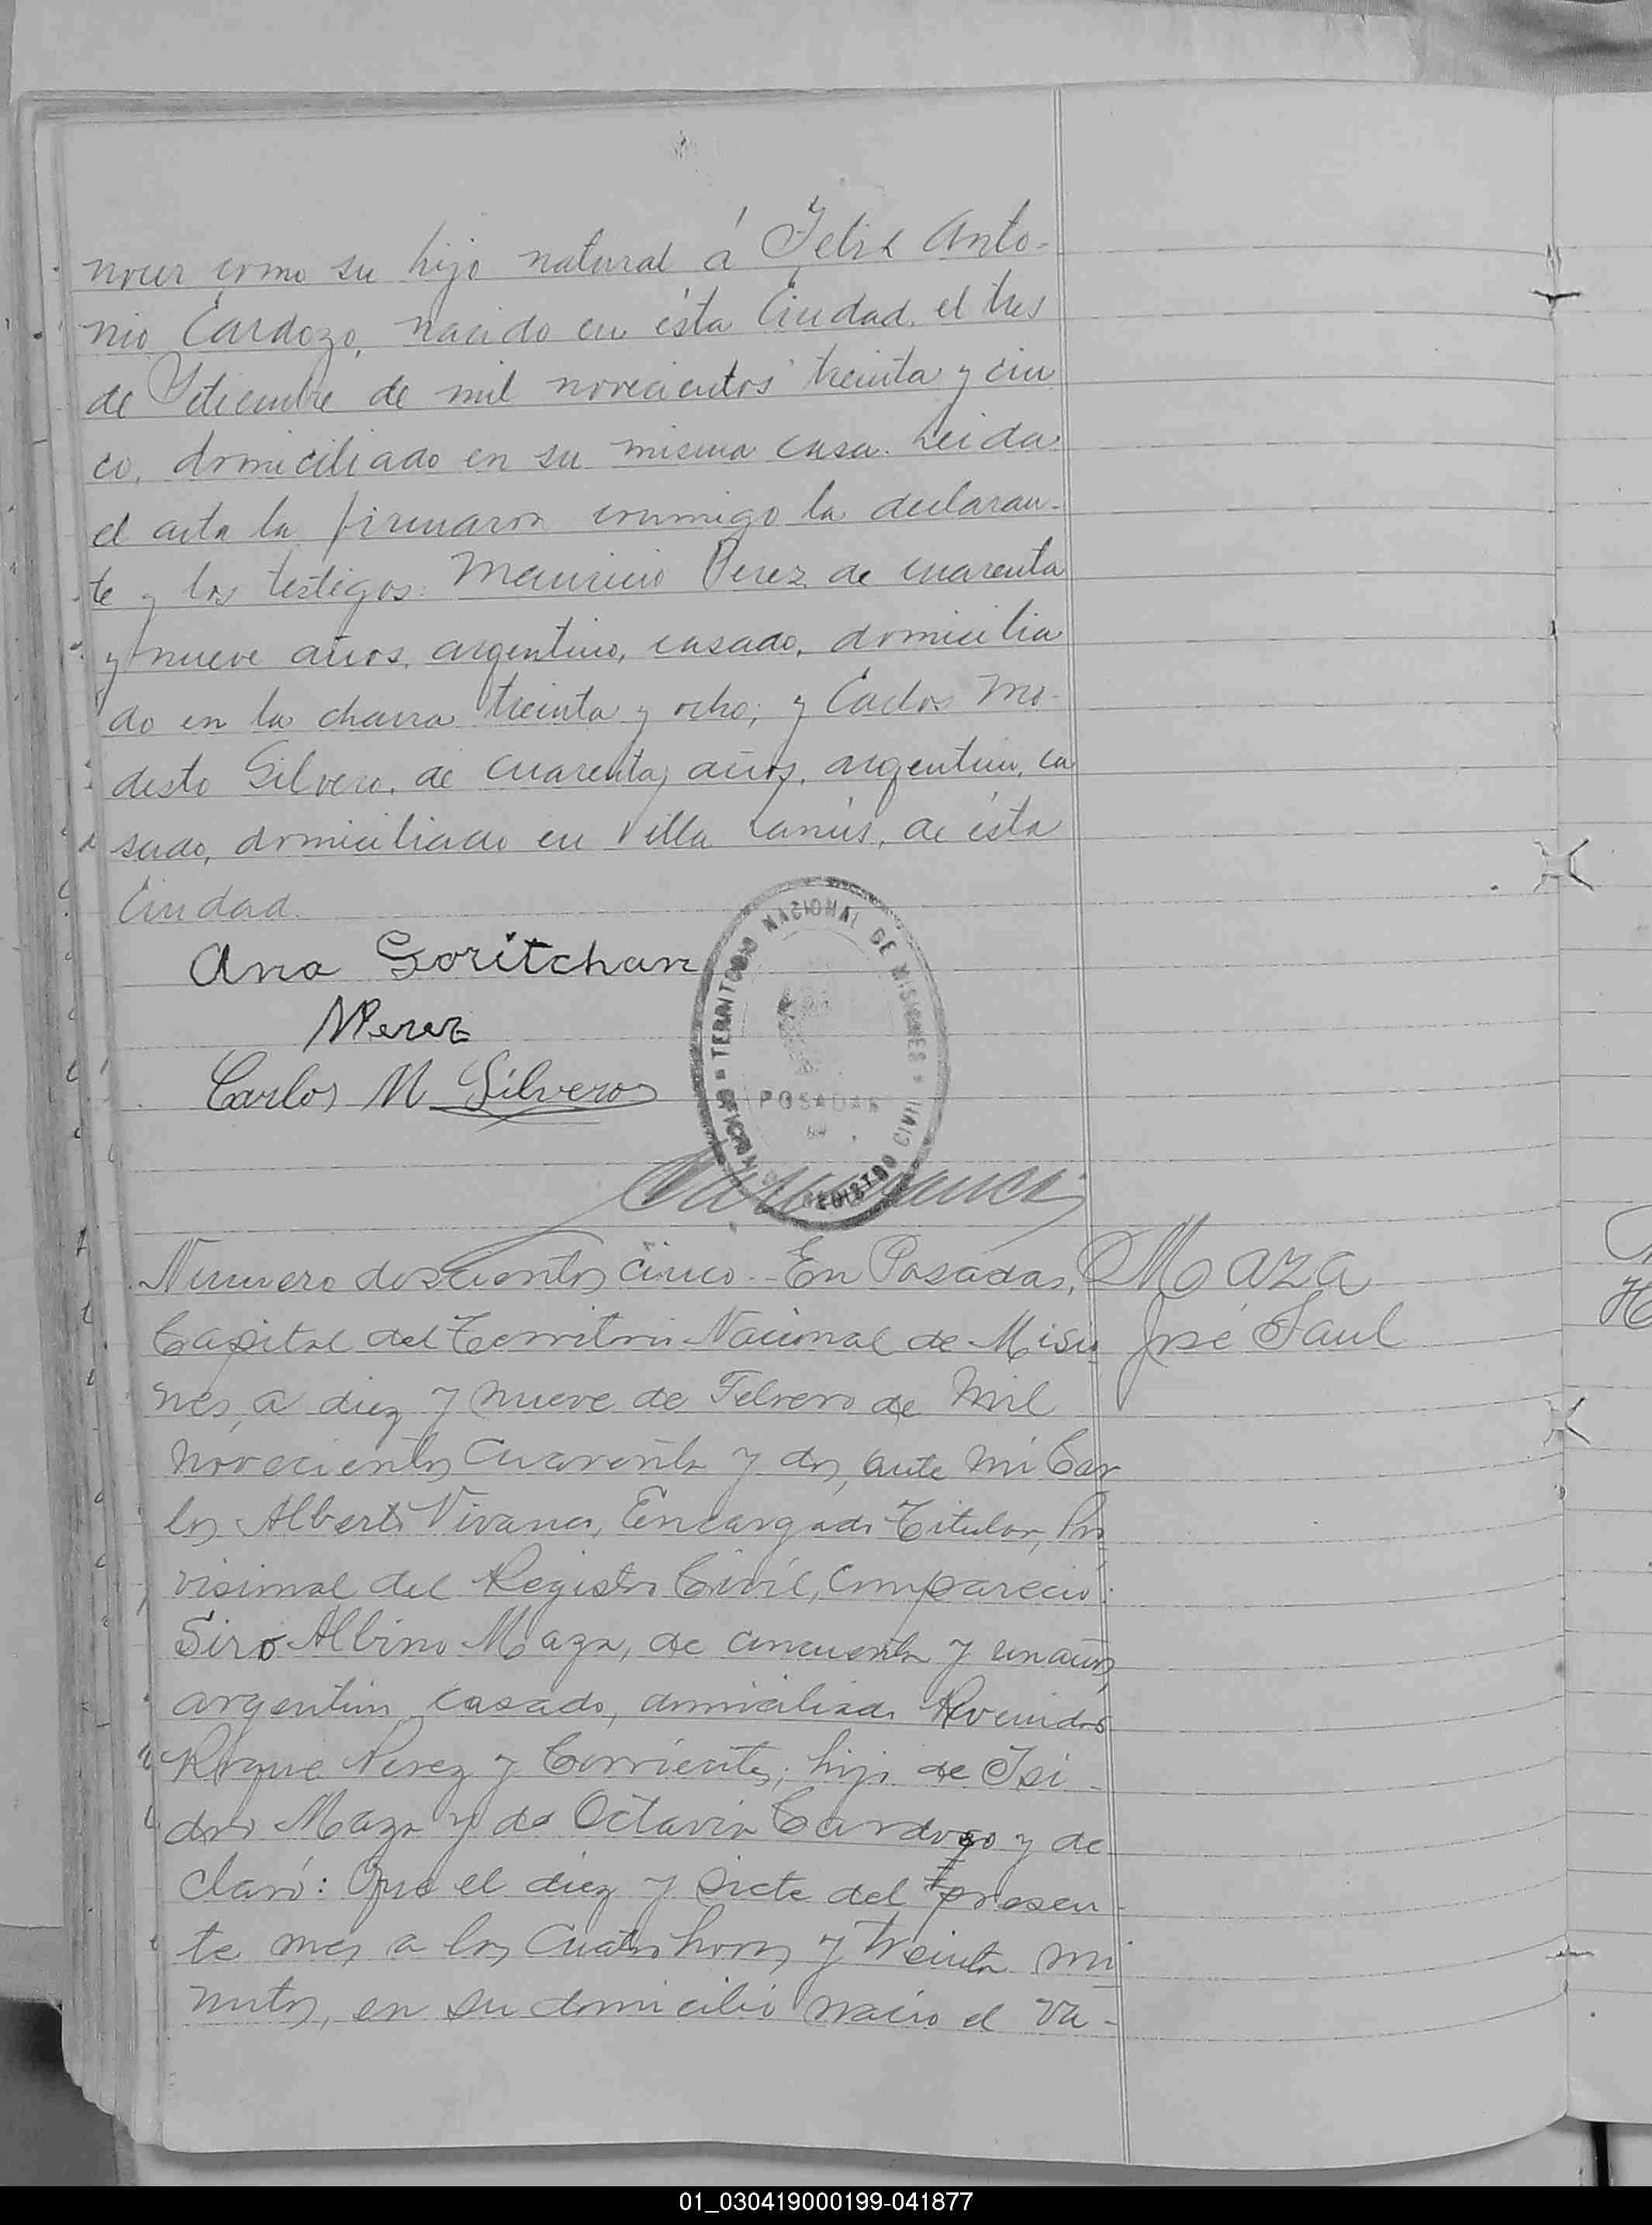 nocer como su hijo natural á Felix Anto-
nio Cardozo, nacido en ésta Ciudad, el tres
de Setiembre de mil novecientos treinta y cin
co, domiciliado en su misma casa. Leida
el acta la firmaron conmigo la declaran-
te y los testigos: Mauricio Perez de cuarenta
y nueve años, argentino, casado, domicilia
do en la chacra treinta y ocho; y Carlos Mo-
desto Silvero, de cuarenta años, argentino, ca
sado, domiciliado en Villa Lanús, de ésta
Ciudad.
Ana Goritchan
MPerez
Carlos M Silvero
TERRITORIO NACIONAL DE MISIONES
POSADAS
REGISTRO CIVIL
Numero doscientos cinco.- En Posadas,
Capital del Territorio Nacional de Misio
nes, a diez y nueve de Febrero de mil
novecientos cuarenta y dos, ante mi Car
los Alberto Vivanco, Encargado Titular, Pro
visional del Registro Civil, compareció:
Siro Albino Maza, de cincuenta y un años,
argentino, casado, domiciliado Avenidas
Roque Perez y Corrientes, hijo de Isi-
dro Maza y de Octavia Cardozo y de
claró: Que el diez y siete del presen-
te mes a las cuatro horas y treinta mi
nutos, en su domicilio nació el va-
Maza
José Saul
01_030419000199-041877